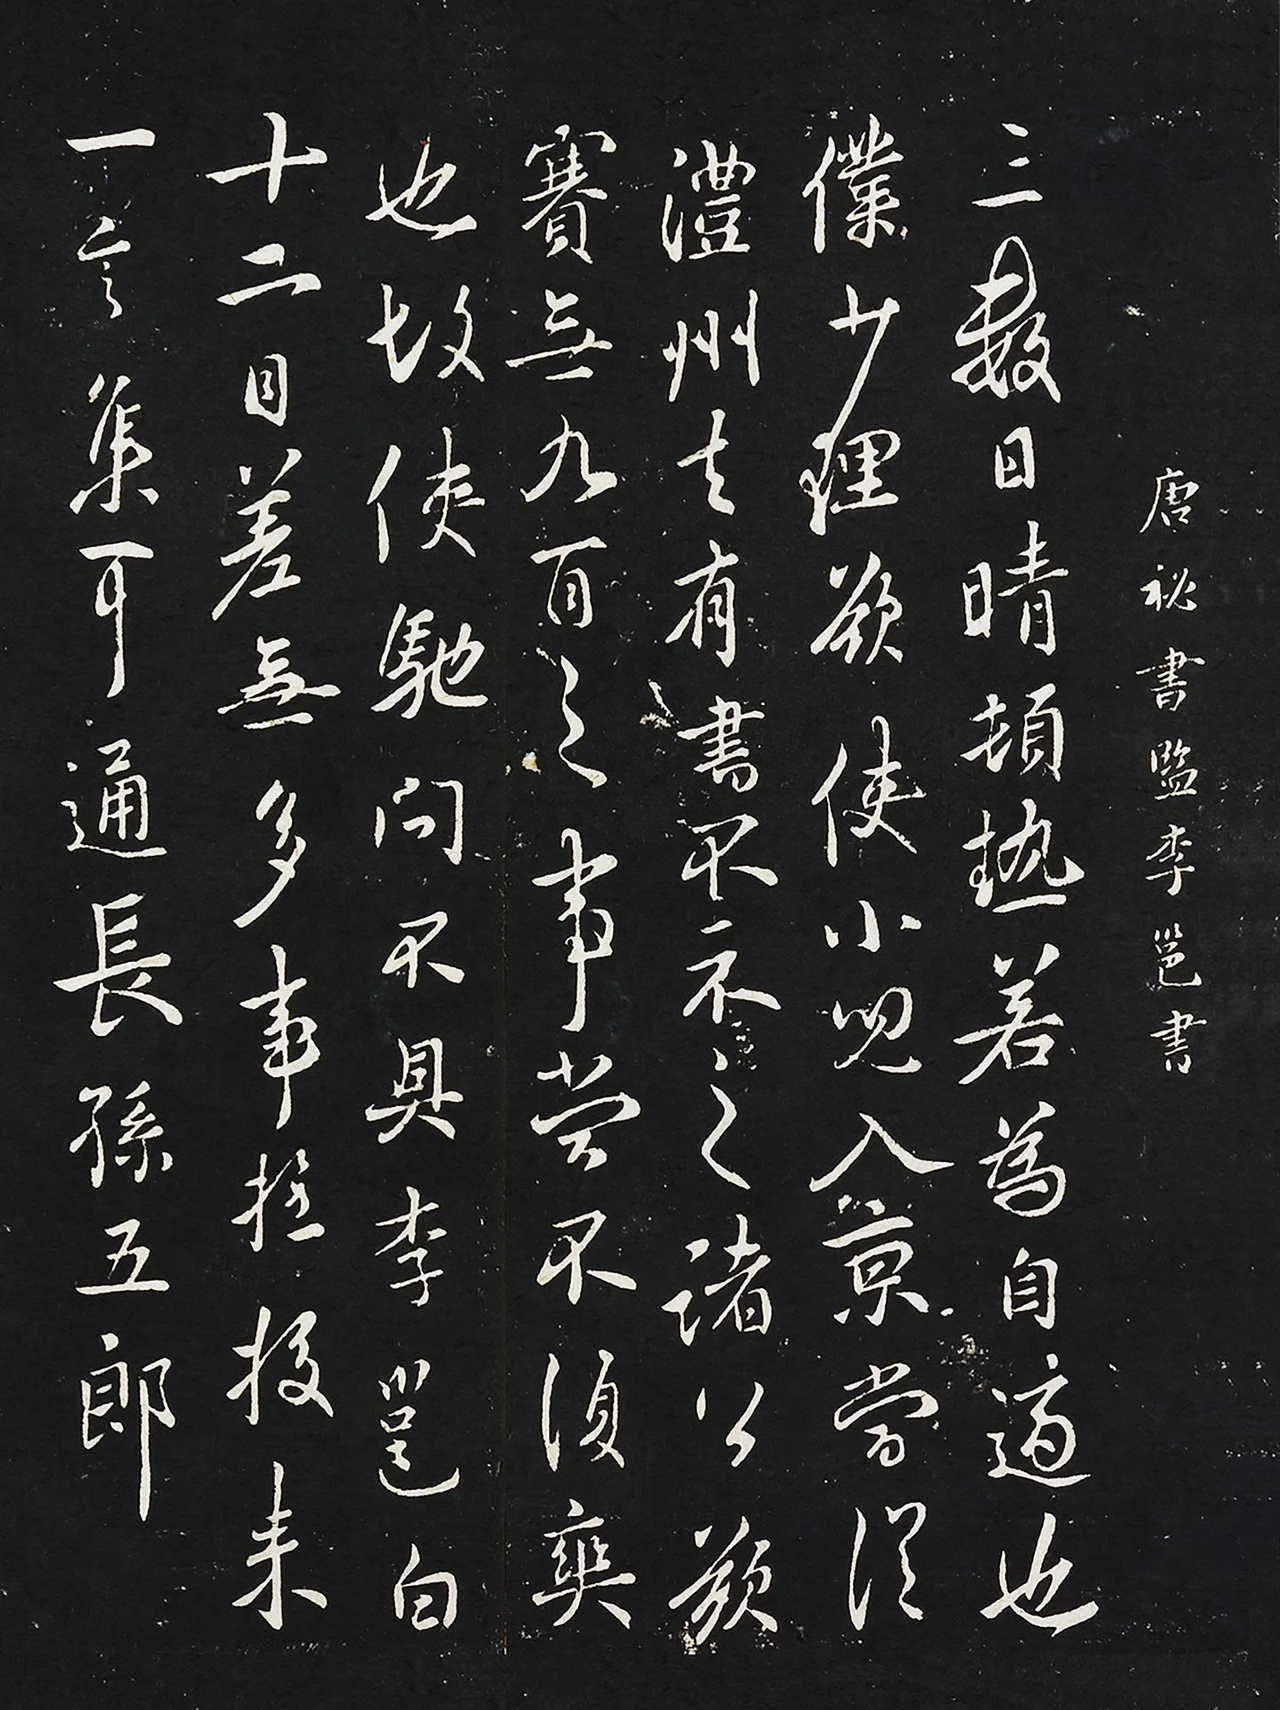 唐秘書監李邕書
三數日晴頓熱若為自適也
僕少理欲使小兒入京當從
澧州去有書不示之諸公欲
賽無九百之事當不須與
也故使馳問不具李邕白
十二日差無多事拴投來
一言集可通長孫五郎